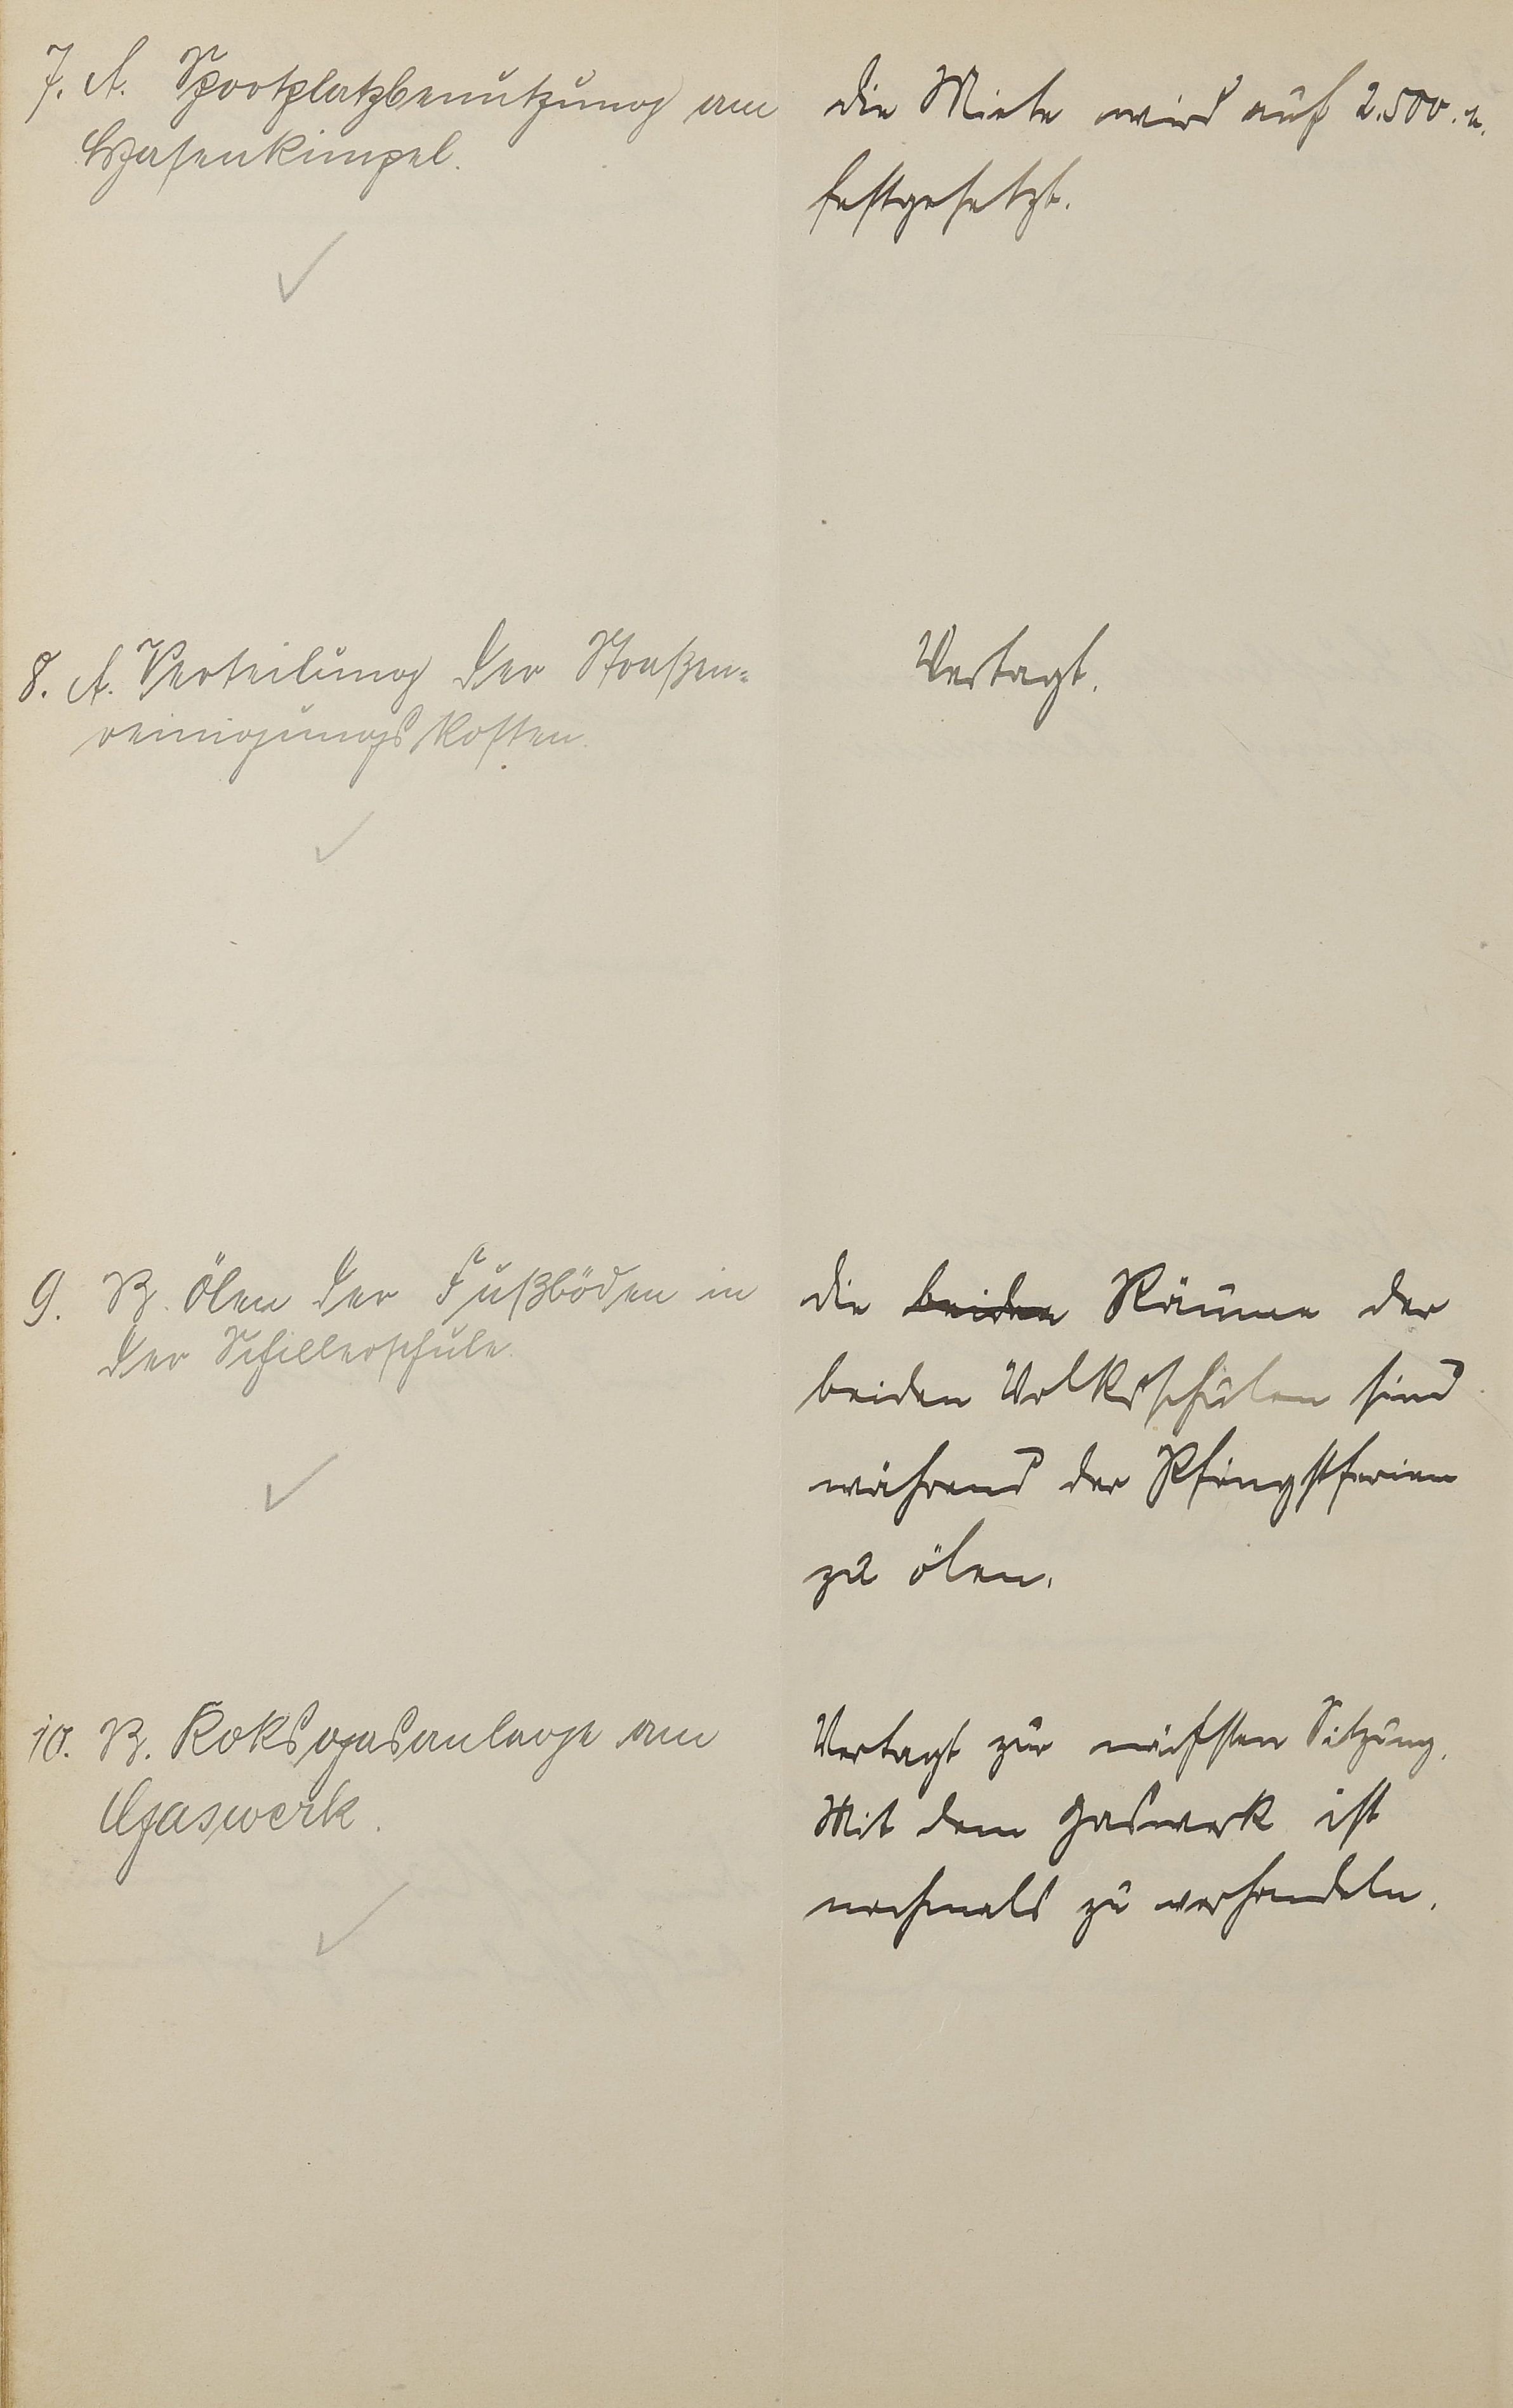 7. A. Sportplatzbenutzung am
Hasenkimpel.
die Miete wird auf 2.500.
festgesetzt.
8. A. Verteilung der Straßen-
reinigungskosten.
Vertagt.
9. B. Ölen der Fußböden in
der Schillerschule.
die beiden Räume der
beiden Volksschulen sind
während der Pfingstferien
zu ölen.
10. B. Koksgasanlage am
Gaswerk.
Vertagt zur nächsten Sitzung.
Mit dem Gaswerk ist
nochmals zu verhandeln.